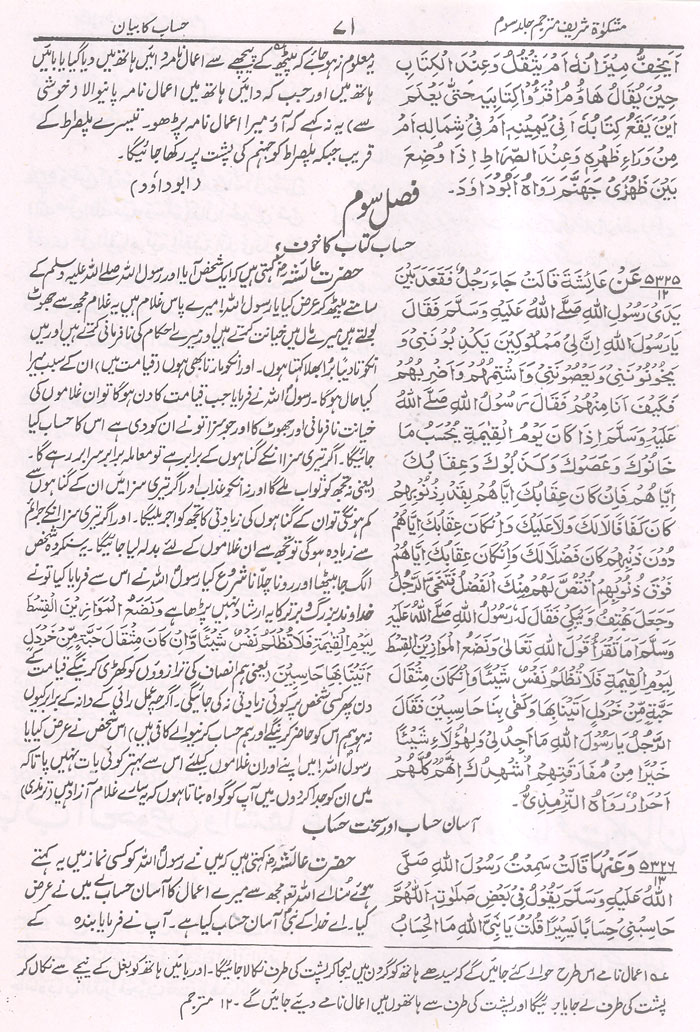 مشکوٰۃ شریف مترجم جلد سوم
۷۱
حساب کا بیان
أَيَخِفُّ مِيزَانُهُ أَمْ يَثْقُلُ وَعِنْدَ الْكِتَابِ
حِينَ يُقَالُ هَاؤُمُ اقْرَءُوا كِتَابِيَهْ حَتَّى يَعْلَمَ
أَيْنَ يَقَعُ كِتَابُهُ أَفِي يَمِينِهِ أَمْ فِي شِمَالِهِ أَمْ
مِنْ وَرَاءِ ظَهْرِهِ وَعِنْدَ الصِّرَاطِ إِذَا وُضِعَ
بَيْنَ ظَهْرَيْ جَهَنَّمَ رَوَاهُ أَبُو دَاوُدَ۔
یہ معلوم نہ ہو جائے کہ پیٹھ کے پیچھے سے اعمال نامہ دائیں ہاتھ میں دیا گیا یا بائیں
ہاتھ میں اور جب کہ دائیں ہاتھ میں اعمال نامہ پانیوالا (خوشی
سے) یہ نہ کہے کہ آؤ میرا اعمال نامہ پڑھو۔ تیسرے پلصراط کے
قریب جبکہ پلصراط کو جہنم کی پشت پر رکھا جائیگا۔
(ابوداؤد)
فصل سوم
حساب کتاب کا خوف؛
۵۳۲۵
۱۲
عَنْ عَائِشَةَ قَالَتْ جَاءَ رَجُلٌ فَقَعَدَ بَيْنَ
يَدَيْ رَسُولِ اللهِ صَلَّى اللهُ عَلَيْهِ وَسَلَّمَ فَقَالَ
يَا رَسُولَ اللهِ إِنَّ لِي مَمْلُوكِينَ يَكْذِبُونَنِي وَ
يَخُونُونَنِي وَيَعْصُونَنِي وَأَشْتِمُهُمْ وَأَضْرِبُهُمْ
فَكَيْفَ أَنَا مِنْهُمْ فَقَالَ رَسُولُ اللهِ صَلَّى اللهُ
عَلَيْهِ وَسَلَّمَ إِذَا كَانَ يَوْمُ الْقِيٰمَةِ يُحْسَبُ مَا
خَانُوكَ وَعَصَوْكَ وَكَذَبُوكَ وَعِقَابُكَ
إِيَّاهُمْ فَإِنْ كَانَ عِقَابُكَ إِيَّاهُمْ بِقَدْرِ ذُنُوبِهِمْ
كَانَ كَفَافًا لَا لَكَ وَلَا عَلَيْكَ وَإِنْ كَانَ عِقَابُكَ إِيَّاهُمْ
دُونَ ذَنْبِهِمْ كَانَ فَضْلًا لَكَ وَإِنْ كَانَ عِقَابُكَ إِيَّاهُمْ
فَوْقَ ذُنُوبِهِمْ اُقْتُصَّ لَهُمْ مِنْكَ الْفَضْلُ فَتَنَحَّى الرَّجُلُ
وَجَعَلَ يَهْتِفُ وَيَبْكِي فَقَالَ لَهُ رَسُولُ اللهِ صَلَّى اللهُ عَلَيْهِ
وَسَلَّمَ أَمَا تَقْرَأُ قَوْلَ اللهِ تَعَالَى وَنَضَعُ الْمَوَازِينَ الْقِسْطَ
لِيَوْمِ الْقِيٰمَةِ فَلَا تُظْلَمُ نَفْسٌ شَيْئًا وَإِنْ كَانَ مِثْقَالَ
حَبَّةٍ مِّنْ خَرْدَلٍ أَتَيْنَا بِهَا وَكَفَى بِنَا حَاسِبِينَ فَقَالَ
الرَّجُلُ يَا رَسُولَ اللهِ مَا أَجِدُ لِي وَلِهٰؤُلَاءِ شَيْئًا
خَيْرًا مِنْ مُفَارَقَتِهِمْ أُشْهِدُكَ أَنَّهُمْ كُلَّهُمْ
أَحْرَارٌ رَوَاهُ التِّرْمِذِيُّ۔
حضرت عائشہؓ کہتی ہیں کہ ایک شخص آیا اور رسول اللہ صلے اللہ علیہ وسلم کے
سامنے بیٹھ کر عرض کیا یا رسول اللہ! میرے پاس غلام ہیں یہ غلام مجھ سے جھوٹ
بولتے ہیں میرے مال میں خیانت کرتے ہیں اور میرے احکام کی نافرمانی کرتے ہیں اور میں
انکو تادیباً بُرا بھلا کہتا ہوں۔ اور انکو مارتا بھی ہوں (قیامت میں) ان کے سبب میرا
کیا حال ہوگا۔ رسول اللہ نے فرمایا جب قیامت کا دن ہوگا تو ان غلاموں کی
خیانت نافرمانی اور جھوٹ کا اور جو سزا تو نے ان کو دی ہے اس کا حساب کیا
جائیگا۔ اگر تیری سزا انکے گناہوں کے برابر ہے تو معاملہ برابر سرابر رہے گا۔
یعنی نہ تجھ کو ثواب ملے گا اور نہ انکو عذاب اور اگر تیری سزائیں ان کے گناہوں سے
کم ہونگی تو ان کے گناہوں کی زیادتی کا تجھ کو اجر ملیگا۔ اور اگر تیری سزا انکے جرائم
سے زیادہ ہوگی تو تجھ سے ان غلاموں کے لئے بدلہ لیا جائیگا۔ یہ سنکر وہ شخص
الگ جا بیٹھا اور رونا چلانا شروع کیا رسول اللہ نے اس سے فرمایا کیا تو نے
خداوند بزرگ برتر کا یہ ارشاد نہیں پڑھا ہے وَنَضَعُ الْمَوَازِينَ الْقِسْطَ
لِيَوْمِ الْقِيٰمَةِ فَلَا تُظْلَمُ نَفْسٌ شَيْئًا وَّإِنْ كَانَ مِثْقَالَ حَبَّةٍ مِّنْ خَرْدَلٍ
أَتَيْنَا بِهَا حَاسِبِينَ یعنی ہم انصاف کی ترازووں کو کھڑی کرینگے قیامت کے
دن پھر کسی شخص پر کوئی زیادتی نہ کی جائیگی۔ اگرچہ عمل رائی کے دانہ کے برابر کیوں
نہ ہو ہم اس کو حاضر کرینگے اور ہم حساب کرنیوالے کافی ہیں) اس شخص نے عرض کیا یا
رسول اللہ! میں اپنے اور ان غلاموں کیلئے اس سے بہتر کوئی بات نہیں پاتا کہ
میں ان کو جدا کردوں میں آپ کو گواہ بناتا ہوں کہ یہ سارے غلام آزاد ہیں (ترمذی)
آسان حساب اور سخت حساب
۵۳۲۶
۱۳
وَعَنْهَا قَالَتْ سَمِعْتُ رَسُولَ اللهِ صَلَّى
اللهُ عَلَيْهِ وَسَلَّمَ يَقُولُ فِي بَعْضِ صَلَوتِهِ اَللّٰهُمَّ
حَاسِبْنِي حِسَابًا يَسِيرًا قُلْتُ يَا نَبِيَّ اللهِ مَا الْحِسَابُ
حضرت عائشہؓ کہتی ہیں کہ میں نے رسول اللہ کو کسی نماز میں یہ کہتے
ہوئے سنا اے اللہ تعؐ مجھ سے میرے اعمال کا آسان حساب لے میں نے عرض
کیا۔ اے خدا کے نبی! آسان حساب کیا ہے۔ آپ نے فرمایا بندہ کے
عہ اعمال نامے اس طرح حوالے کئے جائیں گے کہ سیدھے ہاتھ کو گردن میں لیجا کر پشت کی طرف نکالا جائیگا۔ اور بائیں ہاتھ کو بغل کے نیچے سے نکال کر
پشت کی طرف لے جایا جائیگا اور پشت کی طرف سے ہاتھوں میں اعمال نامے دیئے جائیں گے - ۱۲ مترجم